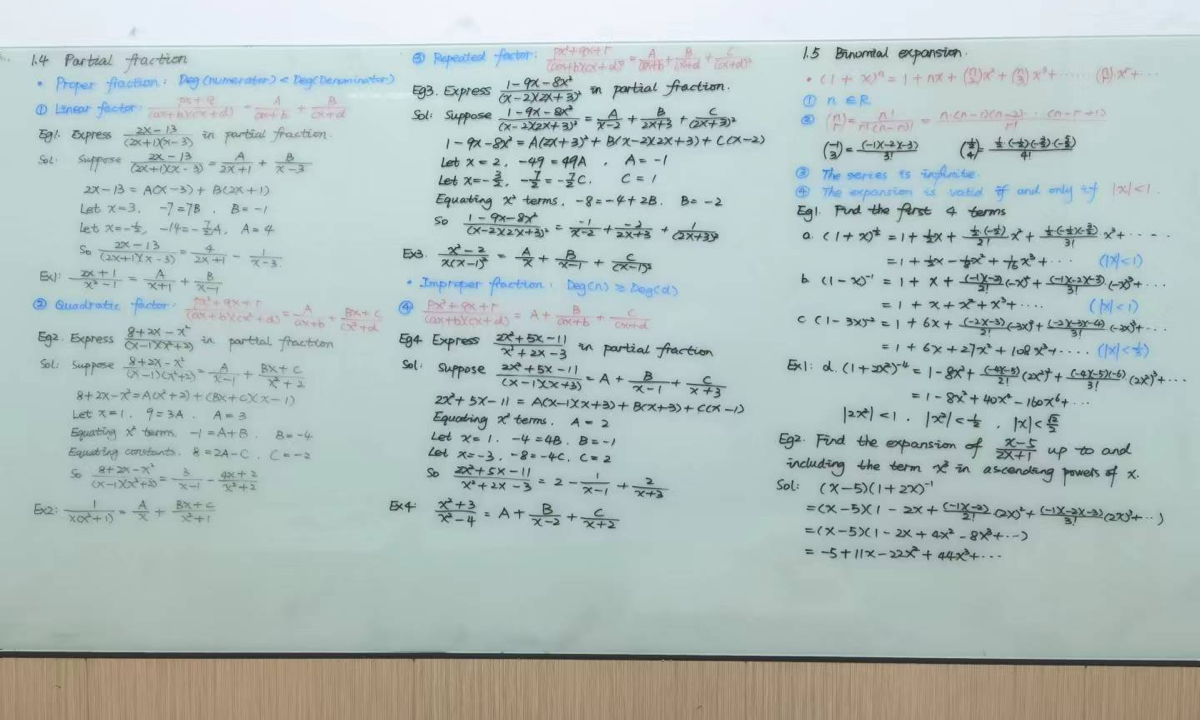 1.4 Partial fraction
• Proper fraction: Deg(numerator) < Deg(Denominator)
① Linear factor: (px+q)/((ax+b)(cx+d)) = A/(ax+b) + B/(cx+d)
Eg1. Express (2x-13)/((2x+1)(x-3)) in partial fraction.
Sol: Suppose (2x-13)/((2x+1)(x-3)) = A/(2x+1) + B/(x-3)
2x-13 = A(x-3) + B(2x+1)
Let x=3, -7=7B, B=-1
Let x=-1/2, -14=-7/2A, A=4
So (2x-13)/((2x+1)(x-3)) = 4/(2x+1) - 1/(x-3).
Ex1: (2x+1)/(x²-1) = A/(x+1) + B/(x-1)
② Quadratic factor: (px²+qx+r)/((ax+b)(cx²+d)) = A/(ax+b) + (Bx+C)/(cx²+d)
Eg2. Express (8+2x-x²)/((x-1)(x²+2)) in partial fraction
Sol: Suppose (8+2x-x²)/((x-1)(x²+2)) = A/(x-1) + (Bx+C)/(x²+2)
8+2x-x² = A(x²+2) + (Bx+C)(x-1)
Let x=1, 9=3A, A=3
Equating x² terms, -1=A+B, B=-4
Equating constants, 8=2A-C, C=-2
So (8+2x-x²)/((x-1)(x²+2)) = 3/(x-1) - (4x+2)/(x²+2)
Ex2: 1/(x(x²+1)) = A/x + (Bx+C)/(x²+1)
③ Repeated factor: (px²+qx+r)/((ax+b)(cx+d)²) = A/(ax+b) + B/(cx+d) + C/(cx+d)²
Eg3. Express (1-9x-8x²)/((x-2)(2x+3)²) in partial fraction.
Sol: Suppose (1-9x-8x²)/((x-2)(2x+3)²) = A/(x-2) + B/(2x+3) + C/(2x+3)²
1-9x-8x² = A(2x+3)² + B(x-2)(2x+3) + C(x-2)
Let x=2, -49=49A, A=-1
Let x=-3/2, -7/2=-7/2C, C=1
Equating x² terms, -8=-4+2B, B=-2
So (1-9x-8x²)/((x-2)(2x+3)²) = -1/(x-2) + -2/(2x+3) + 1/(2x+3)²
Ex3: (x²-2)/(x(x-1)²) = A/x + B/(x-1) + C/(x-1)²
• Improper fraction: Deg(n) ≥ Deg(d)
④ (px²+qx+r)/((ax+b)(cx+d)) = A + B/(ax+b) + C/(cx+d)
Eg4 Express (2x²+5x-11)/(x²+2x-3) in partial fraction
Sol: Suppose (2x²+5x-11)/((x-1)(x+3)) = A + B/(x-1) + C/(x+3)
2x²+5x-11 = A(x-1)(x+3) + B(x+3) + C(x-1)
Equating x² terms, A=2
Let x=1, -4=4B, B=-1
Let x=-3, -8=-4C, C=2
So (2x²+5x-11)/(x²+2x-3) = 2 - 1/(x-1) + 2/(x+3)
Ex4 (x²+3)/(x²-4) = A + B/(x-2) + C/(x+2)
1.5 Binomial expansion.
• (1+x)ⁿ = 1+nx+(n 2)x²+(n 3)x³+ ······ (n r)xʳ+···
① n ∈ R
② (n r) = n!/(r!(n-r)!) = n·(n-1)(n-2)···(n-r+1)/r!
(-1 3) = (-1)(-2)(-3)/3! (1/2 4) = 1/2·(-1/2)(-3/2)(-5/2)/4!
③ The series is infinite.
④ The expansion is valid if and only if |x|<1.
Eg1. Find the first 4 terms
a. (1+x)^1/2 = 1 + 1/2x + (1/2·(-1/2))/2! x² + (1/2·(-1/2)(-3/2))/3! x³ + ·····
= 1 + 1/2x - 1/8x² + 1/16x³ + ··· (|x|<1)
b. (1-x)⁻¹ = 1 + x + (-1)(-2)/2! (-x)² + (-1)(-2)(-3)/3! (-x)³ + ··
= 1 + x + x² + x³ + ···· (|x|<1)
c (1-3x)⁻² = 1 + 6x + (-2)(-3)/2! (-3x)² + (-2)(-3)(-4)/3! (-3x)³ + ···
= 1 + 6x + 27x² + 108x³ + ···· (|x|<1/3)
Ex1: d. (1+2x²)⁻⁴ = 1 - 8x² + (-4)(-5)/2! (2x²)² + (-4)(-5)(-6)/3! (2x²)³ + ···
= 1 - 8x² + 40x⁴ - 160x⁶ + ···
|2x²|<1, |x²|<1/2, |x|<√2/2
Eg2. Find the expansion of (x-5)/(2x+1) up to and
including the term x³ in ascending powers of x.
Sol: (x-5)(1+2x)⁻¹
= (x-5)(1 - 2x + (-1)(-2)/2! (2x)² + (-1)(-2)(-3)/3! (2x)³ + ··)
= (x-5)(1 - 2x + 4x² - 8x³ + ···)
= -5 + 11x - 22x² + 44x³ + ···